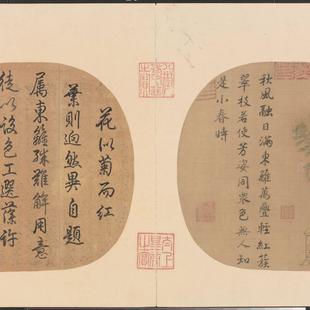 秋風融日滿東籬萬疊輕紅簇
翠枝若使芳姿同衆色無人知
是小春時
花似菊而紅
葉則迥然異自題
属東籬殊難解用意
徒以設色工選